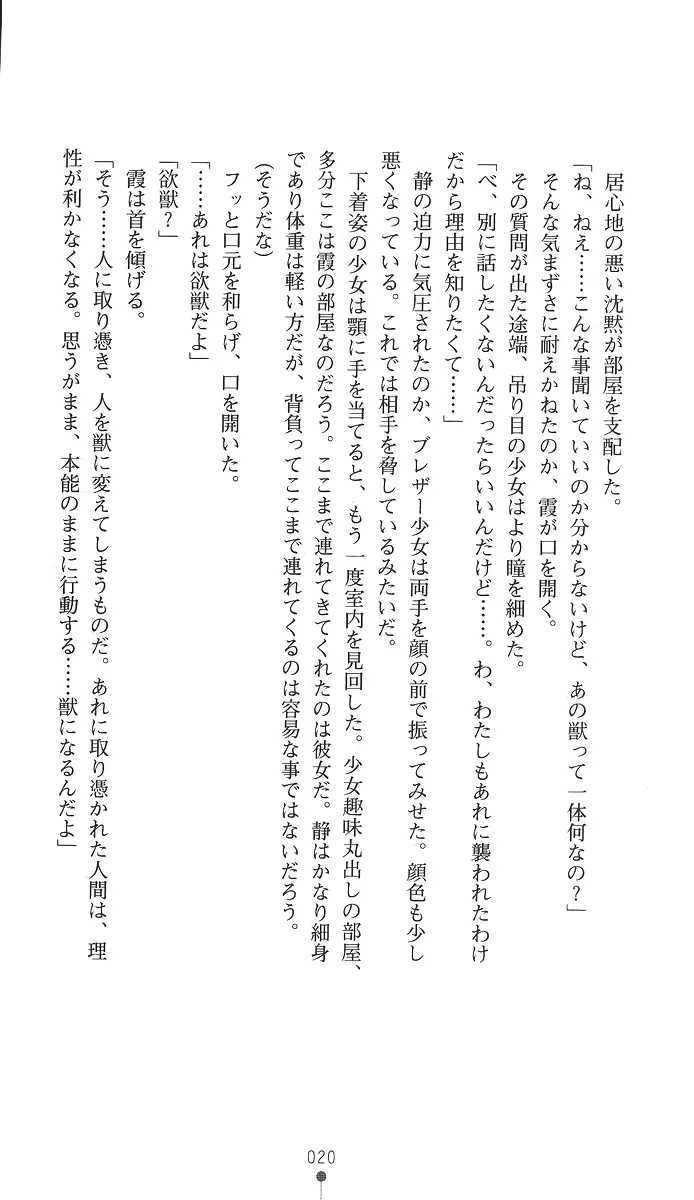 居心地の悪い沈黙が部屋を支配した。
「ね、ねえ……こんな事聞いていいのか分からないけど、あの獣って一体何なの？」
そんな気まずさに耐えかねたのか、霞が口を開く。
その質問が出た途端、吊り目の少女はより瞳を細めた。
「べ、別に話したくないんだったらいいんだけど……。わ、わたしもあれに襲われたわけ
だから理由を知りたくて……」
静の迫力に気圧されたのか、ブレザー少女は両手を顔の前で振ってみせた。顔色も少し
悪くなっている。これでは相手を脅しているみたいだ。
下着姿の少女は顎に手を当てると、もう一度室内を見回した。少女趣味丸出しの部屋、
多分ここは霞の部屋なのだろう。ここまで連れてきてくれたのは彼女だ。静はかなり細身
であり体重は軽い方だが、背負ってここまで連れてくるのは容易な事ではないだろう。
(そうだな)
フッと口元を和らげ、口を開いた。
「……あれは欲獣だよ」
「欲獣？」
霞は首を傾げる。
「そう……人に取り憑き、人を獣に変えてしまうものだ。あれに取り憑かれた人間は、理
性が利かなくなる。思うがまま、本能のままに行動する……獣になるんだよ」
020